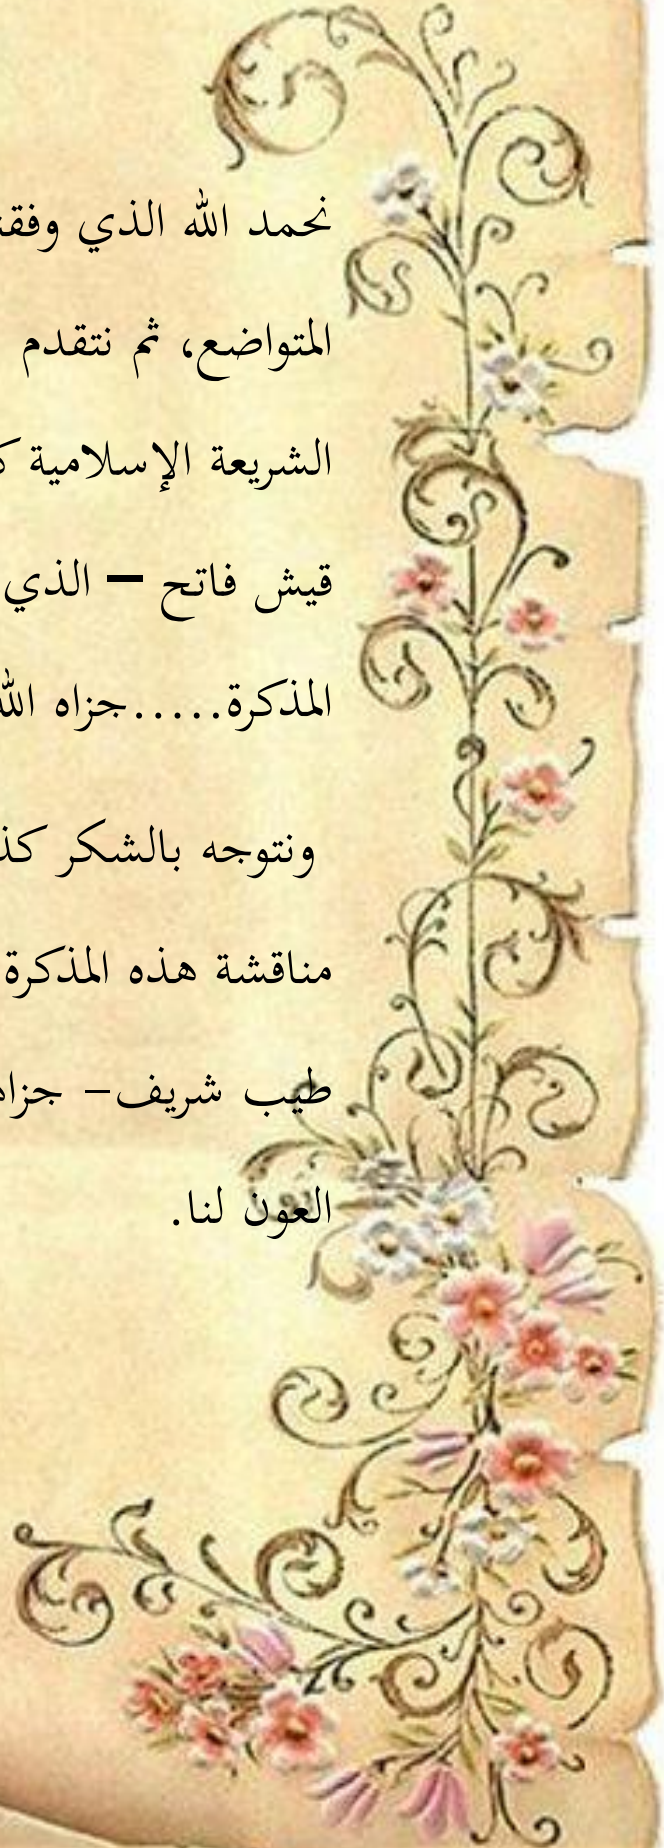 نحمد الله الذي وفقنا
المتواضع، ثم نتقدم
الشريعة الإسلامية
قيش فاتح – الذي
المذكرة.....جزاه الله
ونتوجه بالشكر
مناقشة هذه المذكرة
طيب شريف–
العون لنا.